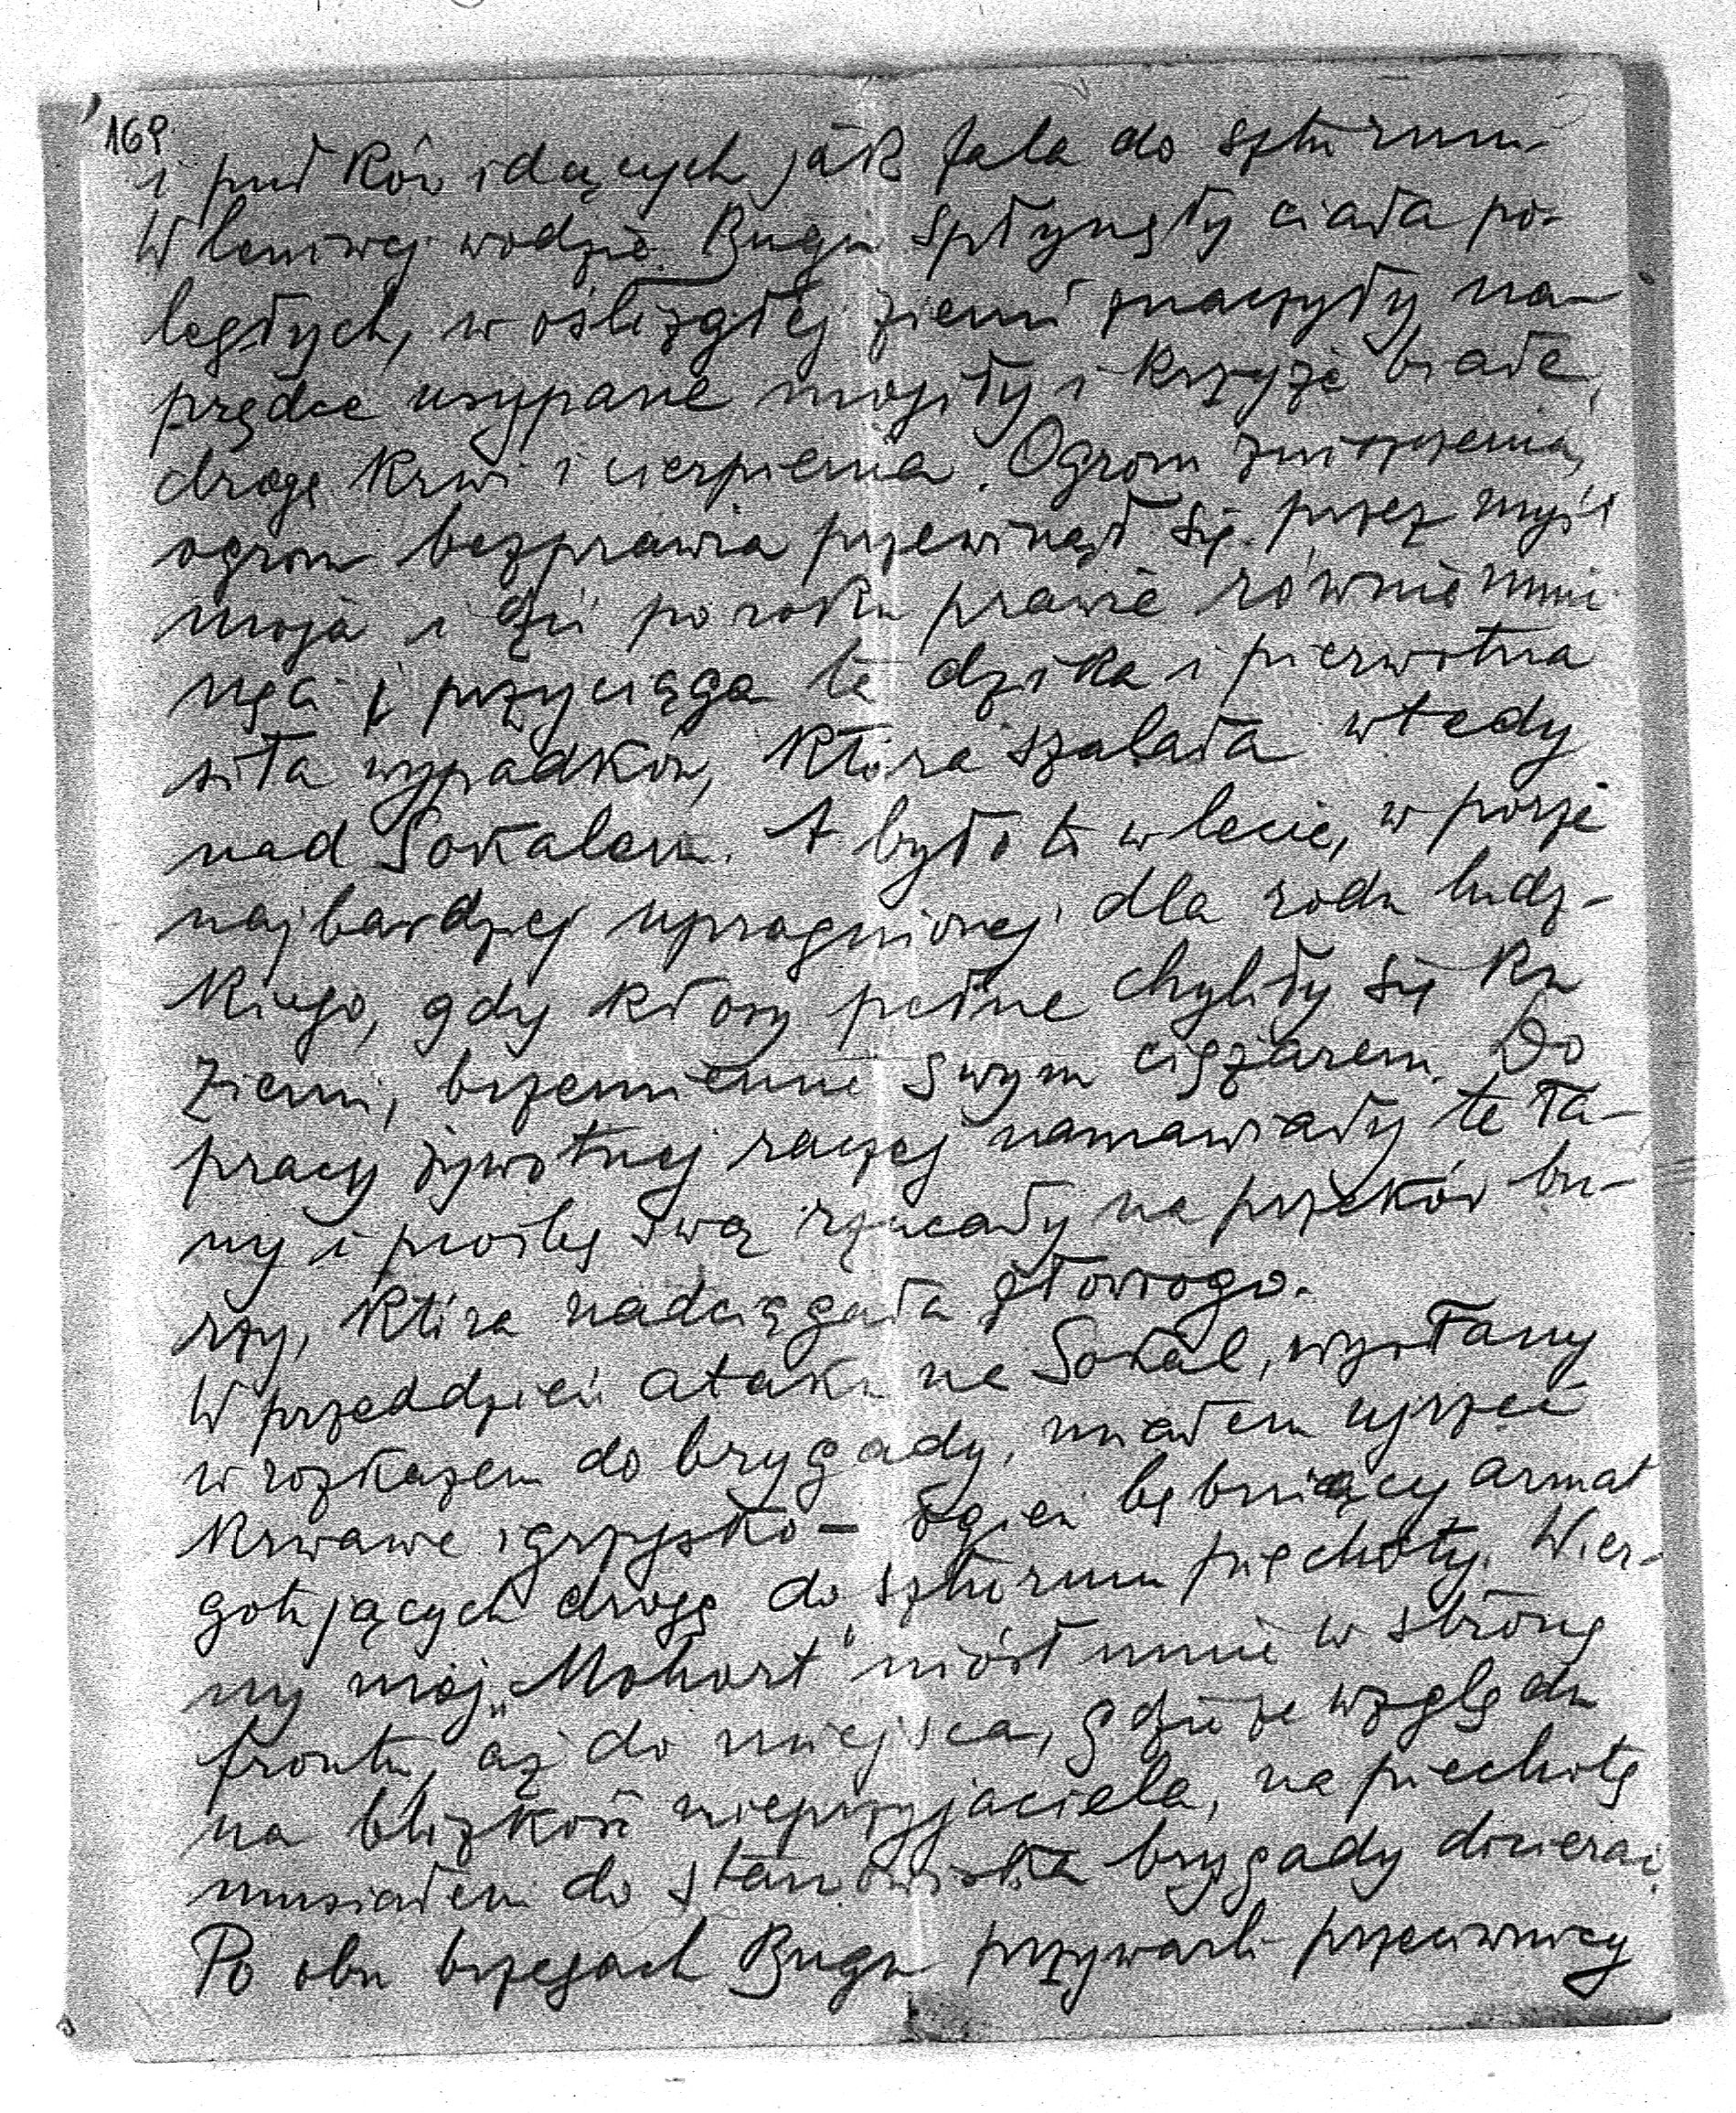 168.
i pułków idących jak fala do szturmu.
W leniwej wodzie Bugu spłynęły ciała po-
ległych, w oślizgłej ziemi znaczyły na-
prędce usypane mogiły i krzyże białe,
drogę krwi i cierpienia. Ogrom zniszczenia,
ogrom bezprawia przewinął się przez myśl
moją i dziś po roku prawie równie mnie
nęci i przyciąga ta dzika i pierwotna
siła wypadków, która szalała wtedy
nad Sokalem. A było to w lecie, w porze
najbardziej upragnionej dla rodu ludz-
kiego, gdy kłosy pełne chyliły się ku
ziemi, brzemienne swym ciężarem. Do
pracy żywotnej raczej namawiały te ła-
ny i prośbę swą rzucały na przekór bu-
rzy, która nadciągała złowrogo.
W przeddzień ataku na Sokal, wysłany
w rozkazem do brygady, miałem ujrzeć
krwawe igrzysko – ogień bębniący armat
gotujących drogę do szturmu piechoty. Wier-
ny mój „Mohort" niósł mnie w stronę
frontu, aż do miejsca, gdzie ze względu
na blizkość nieprzyjaciela, na piechotę
musiałem do stanowiska brygady docierać.
Po obu brzegach Bugu przywarli przeciwnicy